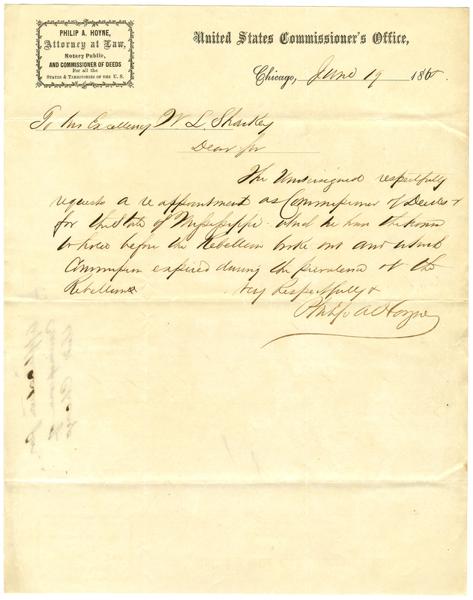 PHILIP A. HOYNE,
Attorney at Law,
Notary Public,
AND COMMISSIONER OF DEEDS
For all the
STATES & TERRITORIES OF THE U. S.
United States Commissioner's Office,
Chicago, June 19 1865
To his Excellency W. L. Sharkey
Dear Sir
The Undersigned respectfully
requests a re appointment as Commissioner of Deeds &
for the State of Mississippi which he had the honor
to hold before the Rebellion broke out and which
Commission expired during the prevalence of the
Rebellion
Very Respectfully &
Philip A Hoyne